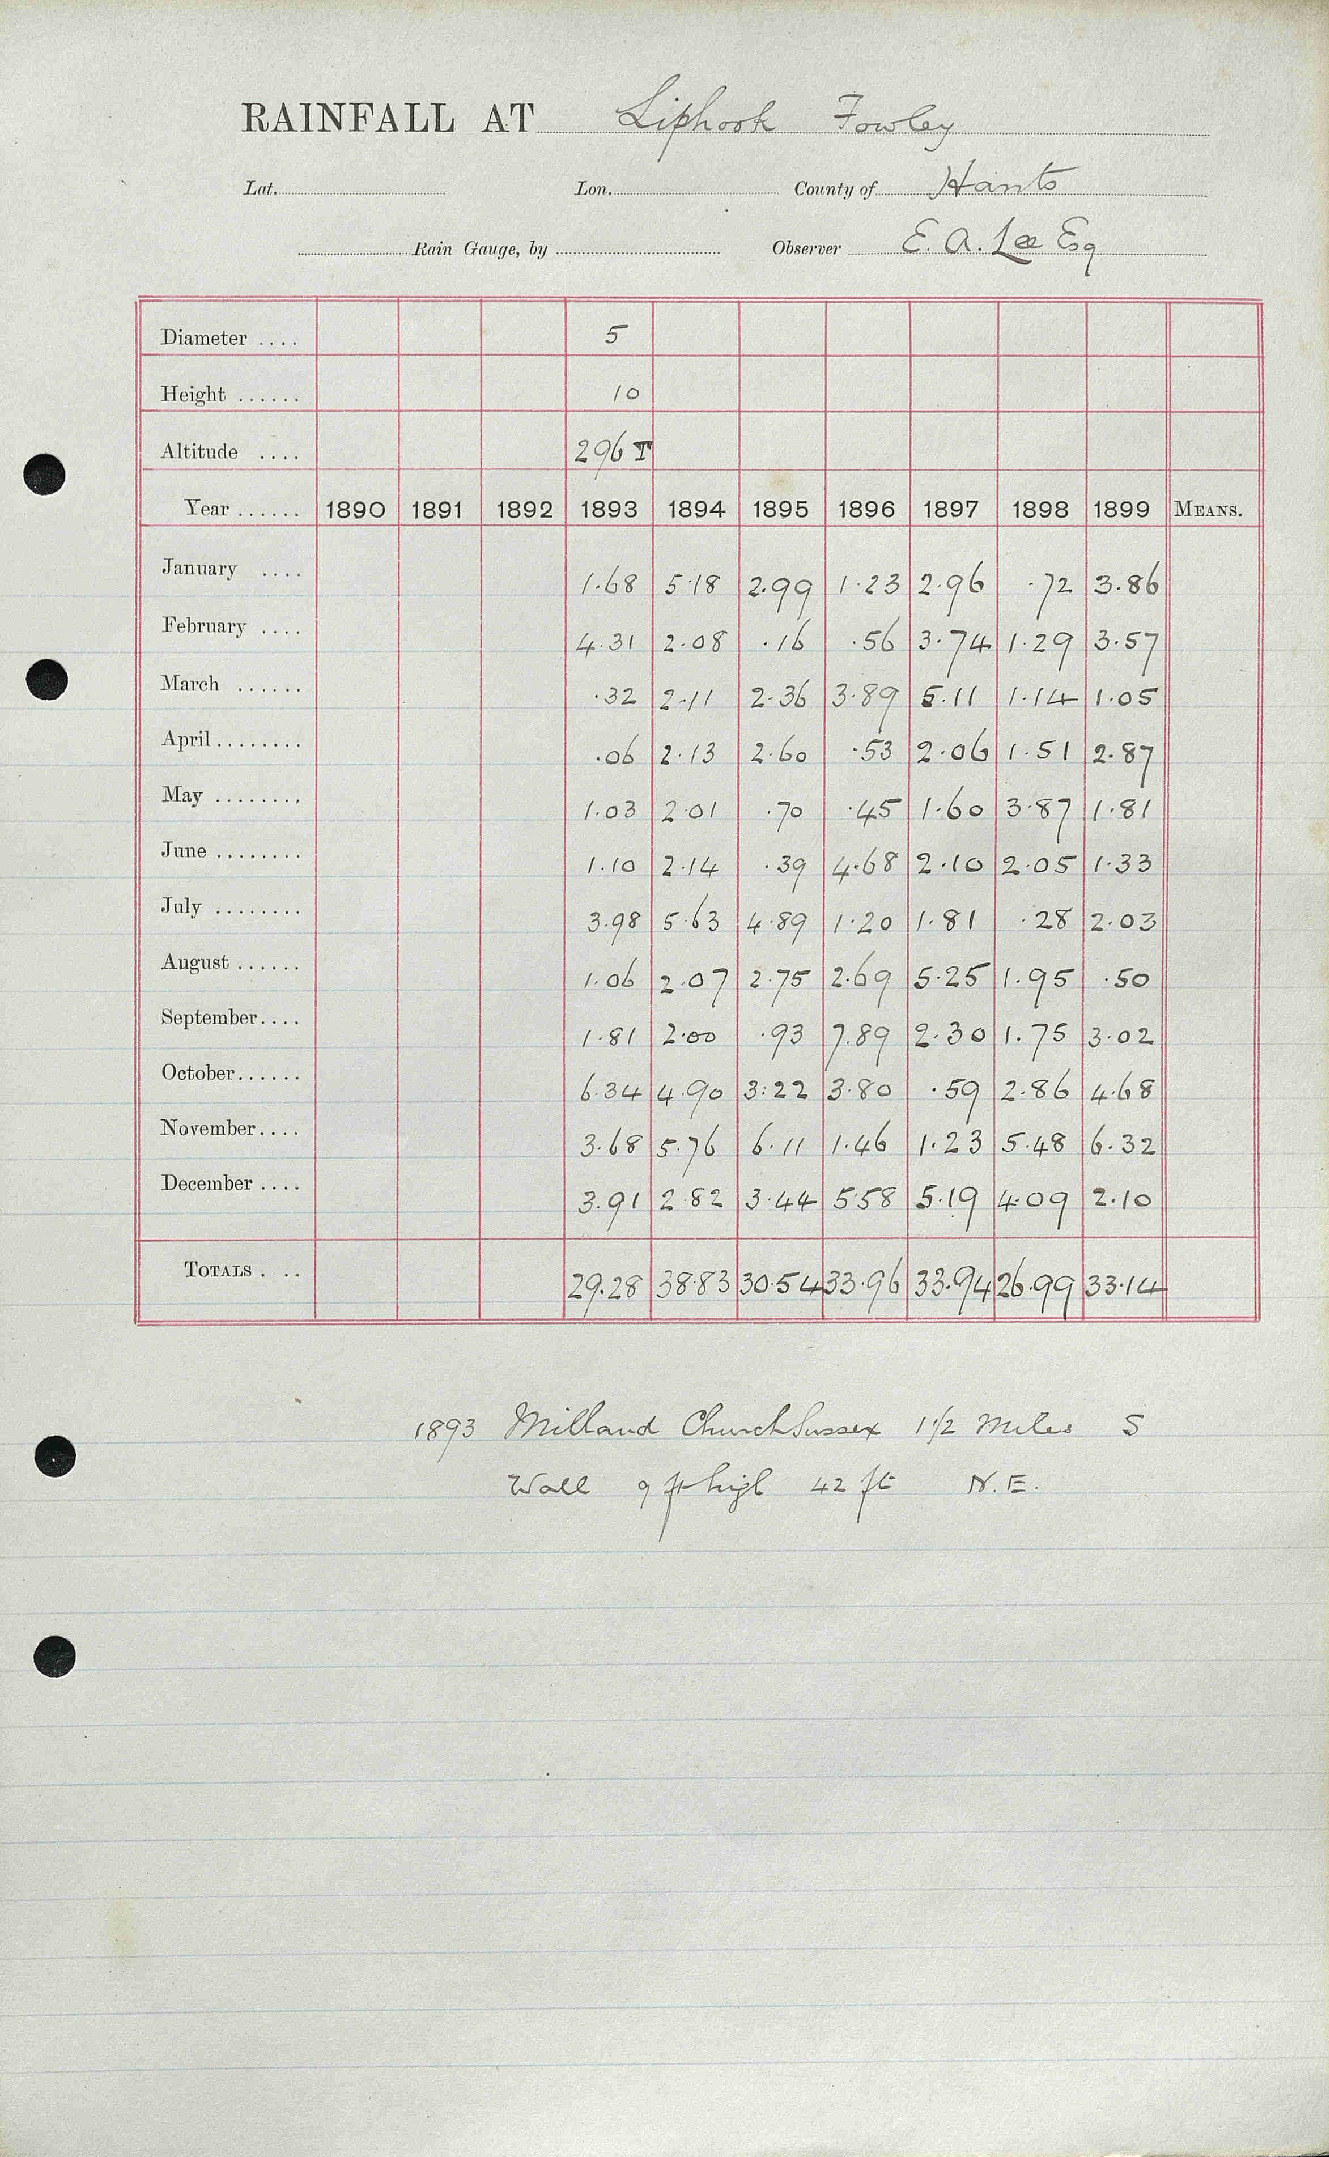 RAINFALL AT Liphook Fowley
Lat. Lon. County of Hants
Rain Gauge, by Observer E. A. Lee Esq
Diameter .... 5
Height ...... 10
Altitude .... 296 T
Year ...... 1890 1891 1892 1893 1894 1895 1896 1897 1898 1899 MEANS.
January .... 1.68 5.18 2.99 1.23 2.96 .72 3.86
February .... 4.31 2.08 .16 .56 3.74 1.29 3.57
March ...... .32 2.11 2.36 3.89 5.11 1.14 1.05
April ........ .06 2.13 2.60 .53 2.06 1.51 2.87
May ........ 1.03 2.01 .70 .45 1.60 3.87 1.81
June ........ 1.10 2.14 .39 4.68 2.10 2.05 1.33
July ........ 3.98 5.63 4.89 1.20 1.81 .28 2.03
August ...... 1.06 2.07 2.75 2.69 5.25 1.95 .50
September.... 1.81 2.00 .93 7.89 2.30 1.75 3.02
October...... 6.34 4.90 3.22 3.80 .59 2.86 4.68
November.... 3.68 5.76 6.11 1.46 1.23 5.48 6.32
December .... 3.91 2.82 3.44 5.58 5.19 4.09 2.10
TOTALS . .. 29.28 38.83 30.54 33.96 33.94 26.99 33.14
1893 Milland Church Sussex 1 1/2 miles S
Wall 9 ft high 42 ft N.E.